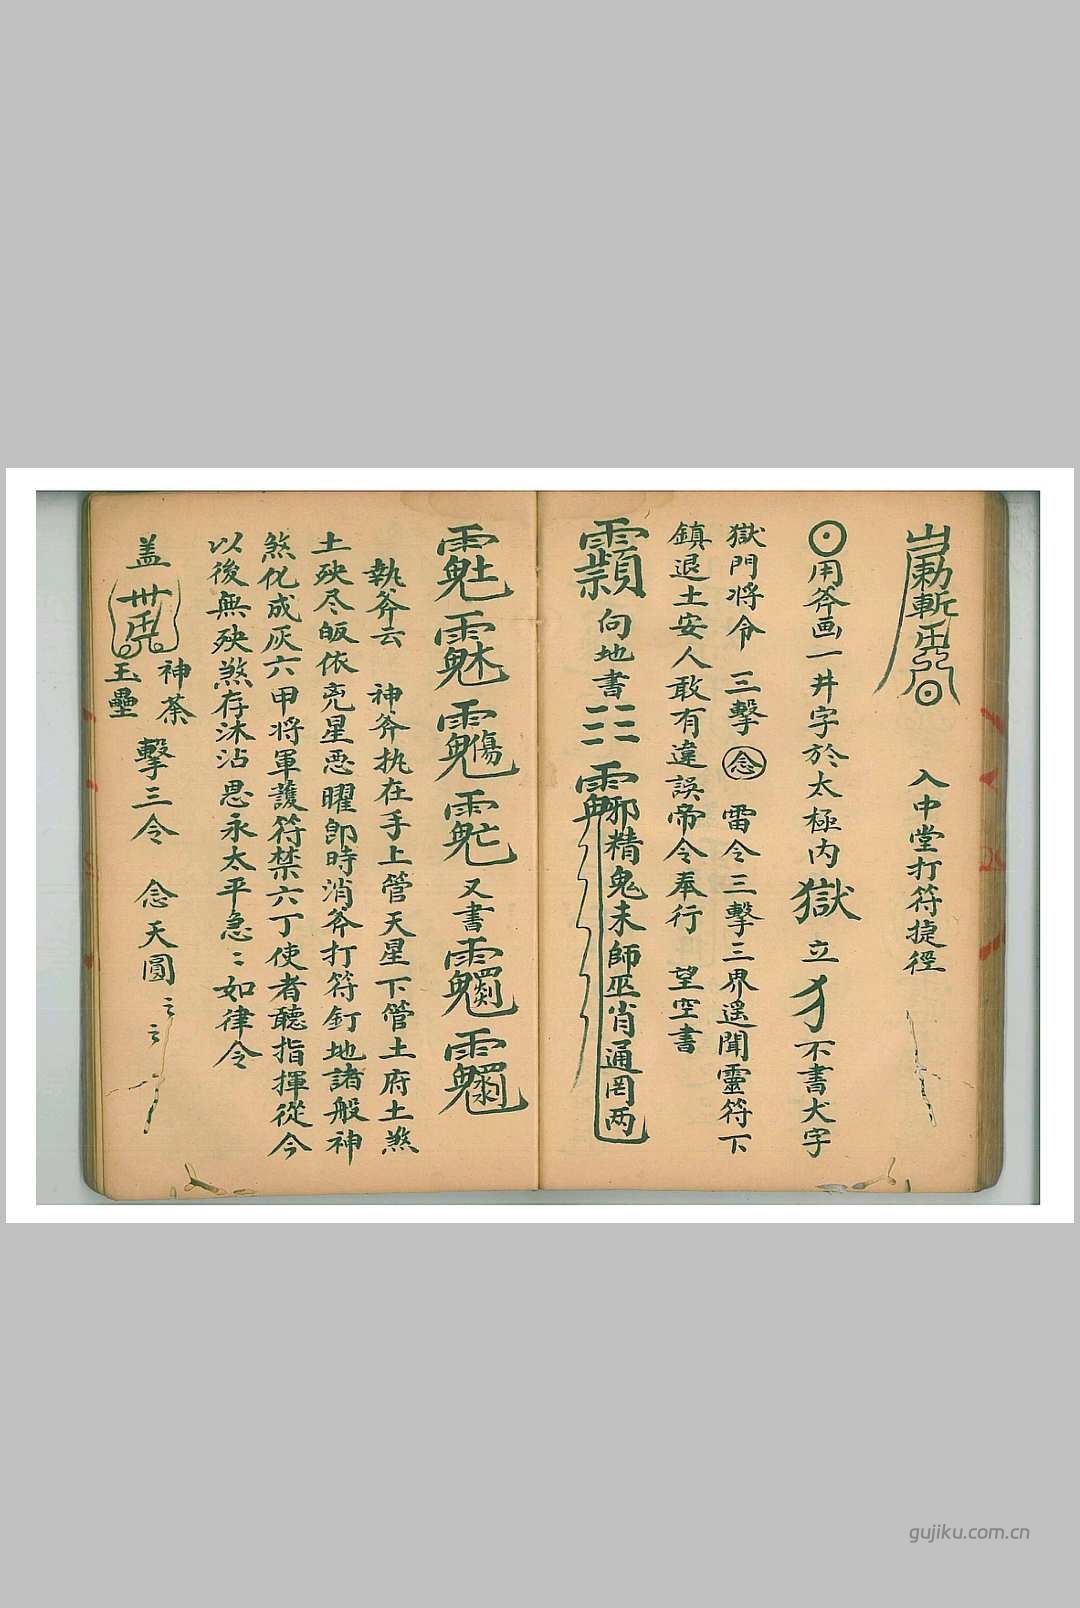 入中堂打符捷徑
用斧画一井字於太極内獄立犭不書犬字
獄門将令 三擊 念 雷令三擊三界遥聞靈符下
鎮退土安人敢有違誤帝令奉行 望空書
向地書
邪精鬼未師巫肖通罔两
又書
執斧云 神斧执在手上管天星下管土府土煞
土殃尽皈依兇星恶曜即時消斧打符釘地諸般神
煞化成灰六甲将軍護符禁六丁使者聽指揮從今
以後無殃煞存沐沾恩永太平急〻如律令
盖 神荼
玉壘 擊三令 念天圓〻〻
gujiku.com.cn